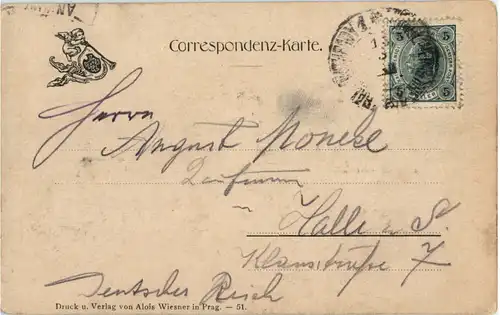 Correspondenz-Karte.
5 5
Herrn
August Monese
Halle a. S.
Klausstraße 7
Deutsches Reich
Druck u. Verlag von Alois Wiesner in Prag. — 51.